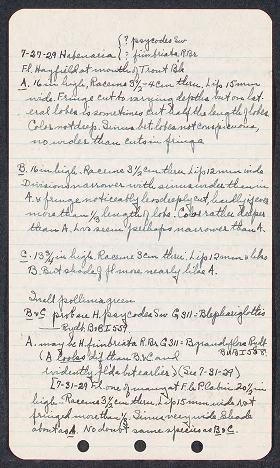 {? psycodes Sw
7-27-29 Habenaria {? fimbriata R.Br
Fl. Hayfield at mouth of Trout Bk
A. 16 in high. Raceme 3½-4 cm thru. Lip 15 mm
wide. Fringe cut to varying depths but on lat
eral lobes is sometimes cut half the length of lobes.
Color not deep. Sinus bet lobes not conspicuous,
no wider than cuts in fringe
B. 16 in high. Raceme 3½ cm thru. Lip 12 mm wide
Divisions narrower with sinus wider than in
A. & fringe noticeably less deeply cut, hardly if ever
more than ⅓ length of lobe. Color rather deeper
than A. Lvs seem perhaps narrower than A.
C. 13¾ in high. Raceme 3 cm thru. Lip 12 mm & like
B. But shade of fl more nearly like A.
In all pollinia green
B & C prob are H. psycodes Sw G 311 = Blephariglottis
Rydb. B&B I 559.
A. may be H. fimbriata R.Br G 311 = B grandiflora Rydb
B&B I 558.
(A looks dif than B & C and
evidently flds bit earlier) (See 7-31-29)
[7-31-29 Fl. one of many at F.L.P. Cabin 20½ in
high. Raceme 3½ cm thru. Lip 15 mm wide not
fringed more than ⅓. Sinus very wide. Shade
about as A. No doubt same species as B & C.